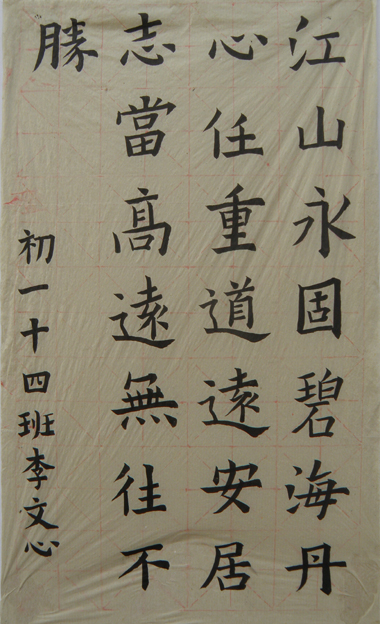 江山永固碧海丹
心任重道遠安居
志當高遠無往不
勝
初一十四班李文心